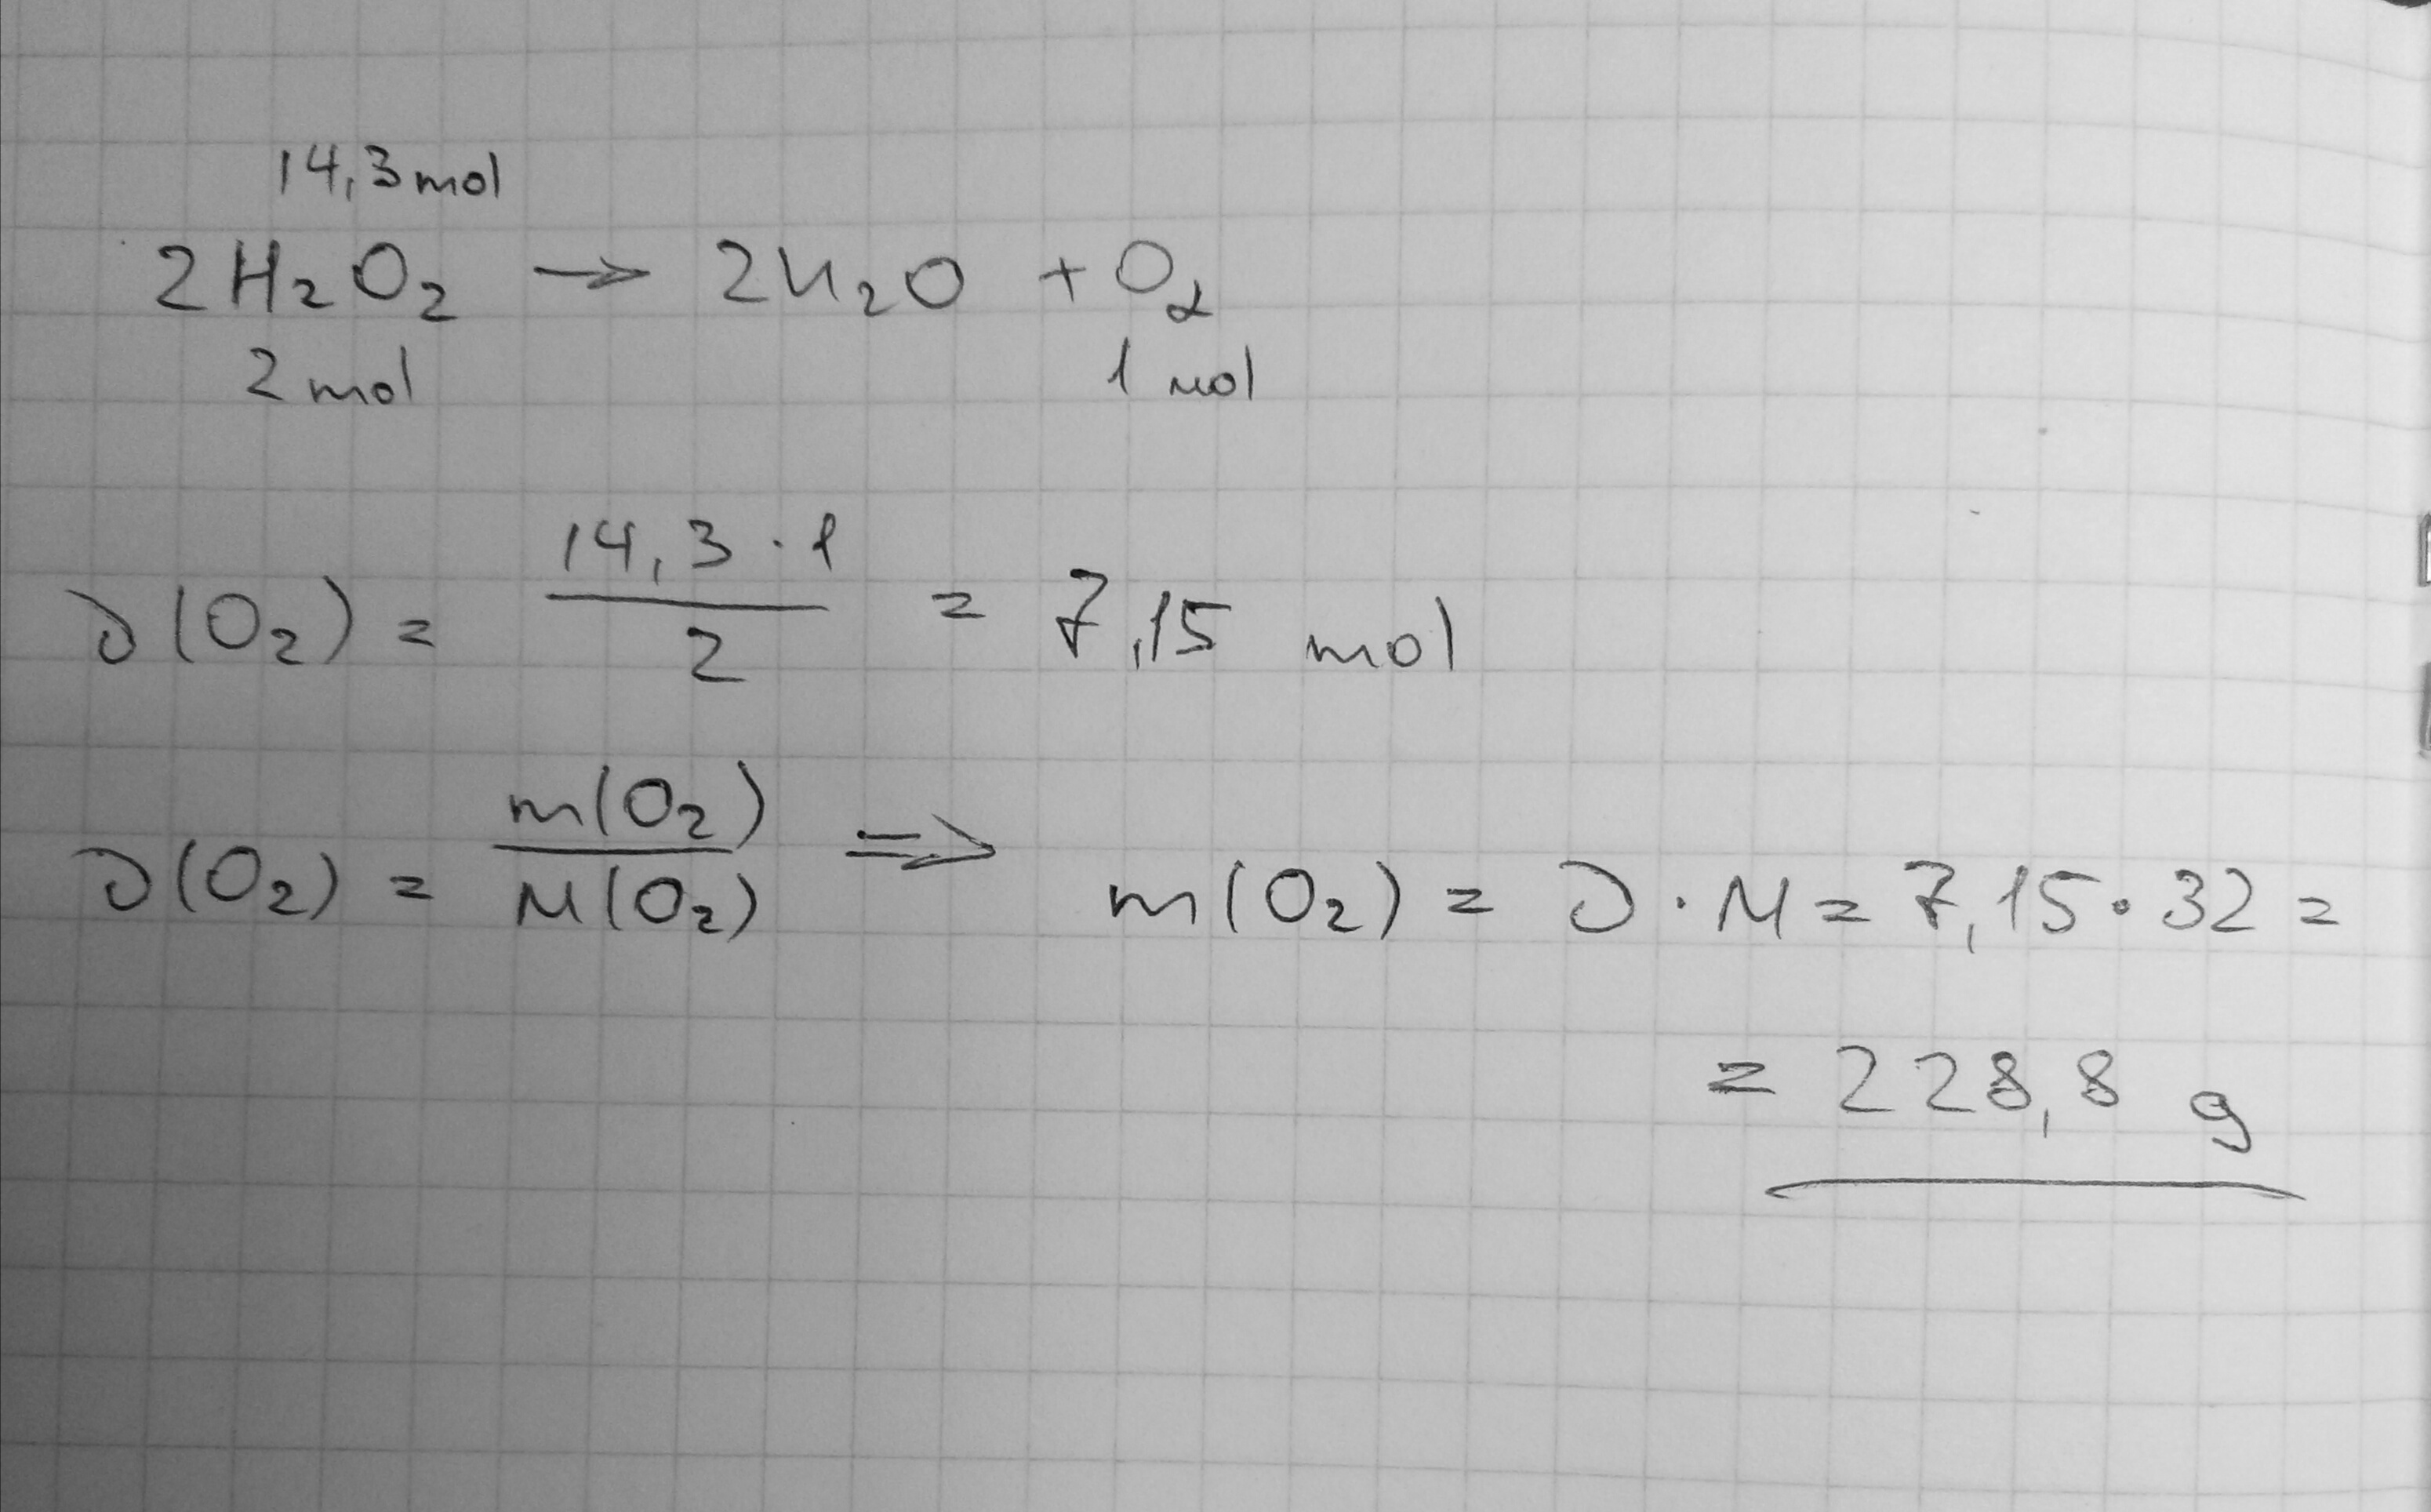 14,3 mol
2H₂O₂ → 2H₂O + O₂
2 mol 1 mol
ν(O₂) = 14,3 · 1 / 2 = 7,15 mol
ν(O₂) = m(O₂) / M(O₂) ⇒ m(O₂) = ν · M = 7,15 · 32 =
= 228,8 g